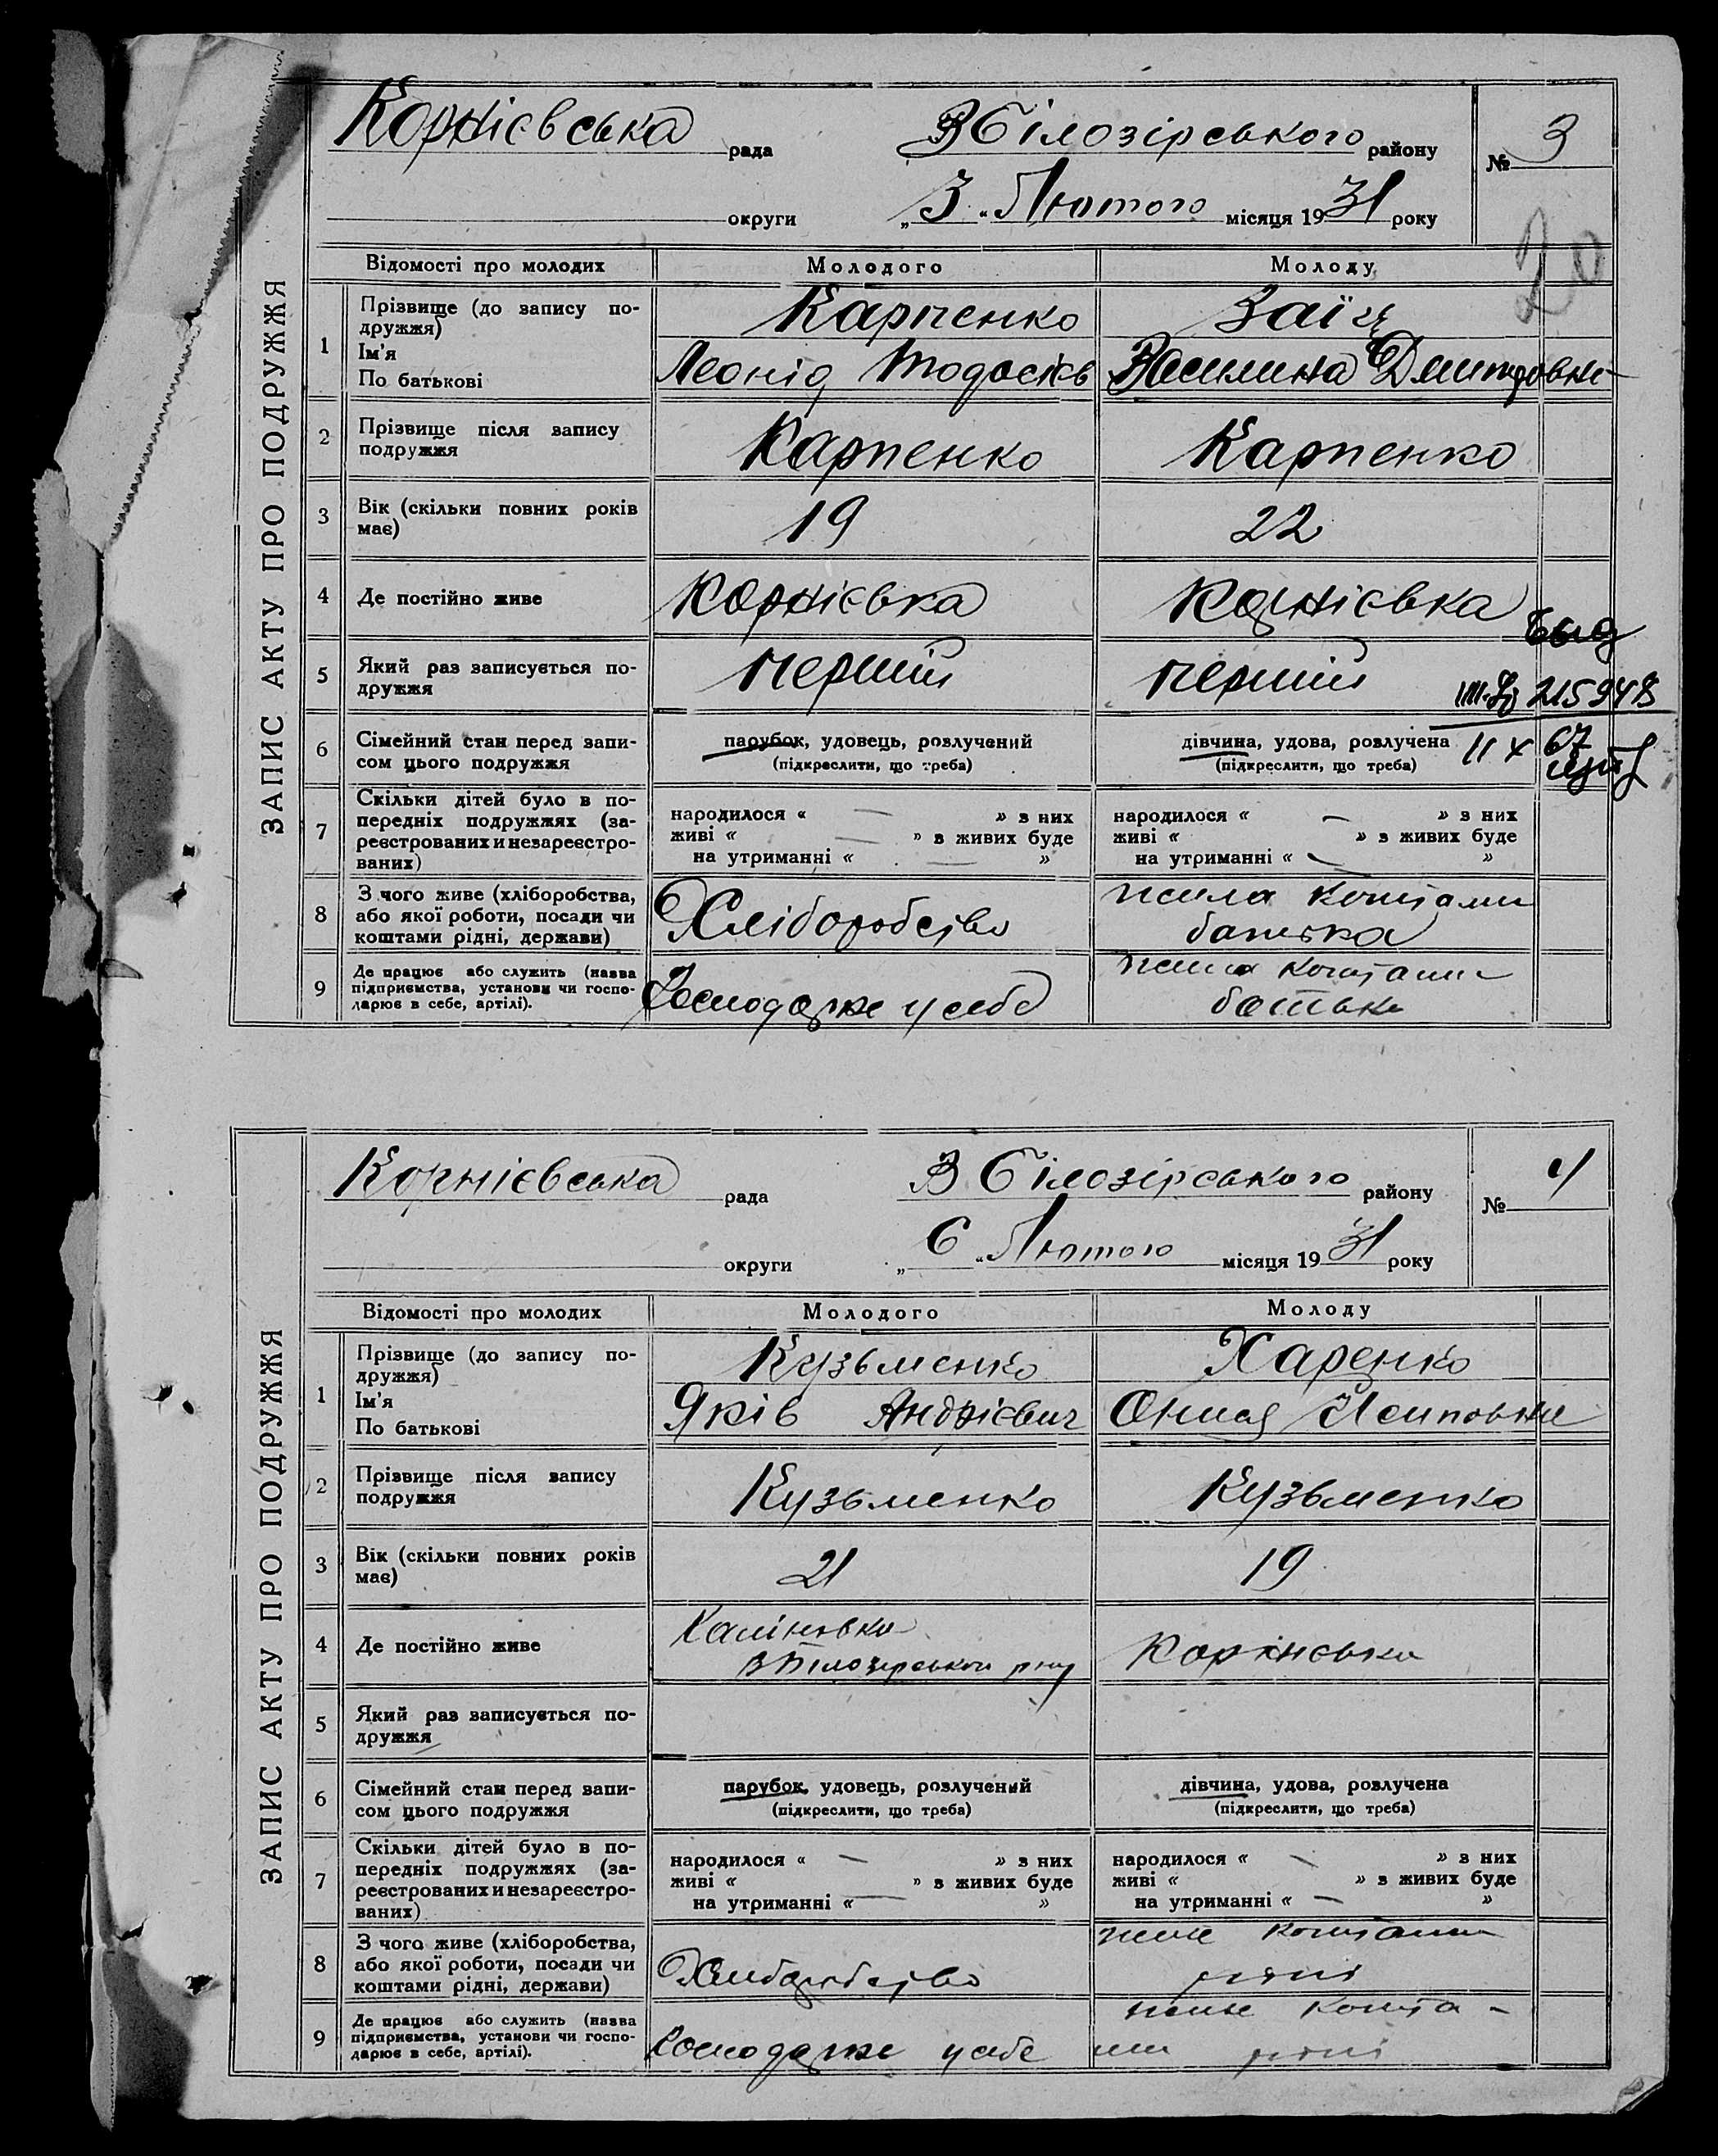 ЗАПИС АКТУ ПРО ПОДРУЖЖЯ
Корнієвська рада
В Білозірського району
№ 3
округи
„ 3 “ Лютого місяця 1931 року
20
Відомості про молодих Молодого Молоду
1 Прізвище (до запису по-
дружжя)
Карпенко Заїц
Ім'я
По батькові
Леонід Тодосієв Василина Дмитровна
2 Прізвище після запису
подружжя
Карпенко Карпенко
3 Вік (скільки повних років
має)
19 22
4 Де постійно живе Корнієвка Корнієвка
5 Який раз записується по-
дружжя
перший перший
215948
6 Сімейний стан перед запи-
сом цього подружжя
парубок, удовець, розлучений
(підкреслити, що треба)
дівчина, удова, розлучена
(підкреслити, що треба)
67
7 Скільки дітей було в по-
передніх подружжях (за-
реєстрованих и незареєстро-
ваних)
народилося « — » з них
живі « — » в живих буде
на утриманні « — »
народилося « — » з них
живі « » в живих буде
на утриманні « — »
8 З чого живе (хліборобства,
або якої роботи, посади чи
коштами рідні, держави)
Хліборобство
жила коштами
батька
9 Де працює або служить (назва
підприємства, установи чи госпо-
дарює в себе, артілі).
Господарює у себе
жила коштами
батька
ЗАПИС АКТУ ПРО ПОДРУЖЖЯ
Корнієвська рада
В Білозірського району
№ 4
округи
„ 6 “ Лютого місяця 1931 року
Відомості про молодих Молодого Молоду
1 Прізвище (до запису по-
дружжя)
Кузьменко Харенко
Ім'я
По батькові
Яків Андрієвич Осиповна
2 Прізвище після запису
подружжя
Кузьменко Кузьменко
3 Вік (скільки повних років
має)
21 19
4 Де постійно живе
Каліновка
В Білозірського р-ну
Корнієвка
5 Який раз записується по-
дружжя
6 Сімейний стан перед запи-
сом цього подружжя
парубок, удовець, розлучений
(підкреслити, що треба)
дівчина, удова, розлучена
(підкреслити, що треба)
7 Скільки дітей було в по-
передніх подружжях (за-
реєстрованих и незареєстро-
ваних)
народилося « — » з них
живі « » в живих буде
на утриманні « — »
народилося « — » з них
живі « » в живих буде
на утриманні « — »
8 З чого живе (хліборобства,
або якої роботи, посади чи
коштами рідні, держави)
Хліборобство
живе коштами
рідні
9 Де працює або служить (назва
підприємства, установи чи госпо-
дарює в себе, артілі).
Господарює у себе
живе кошта-
ми рідні